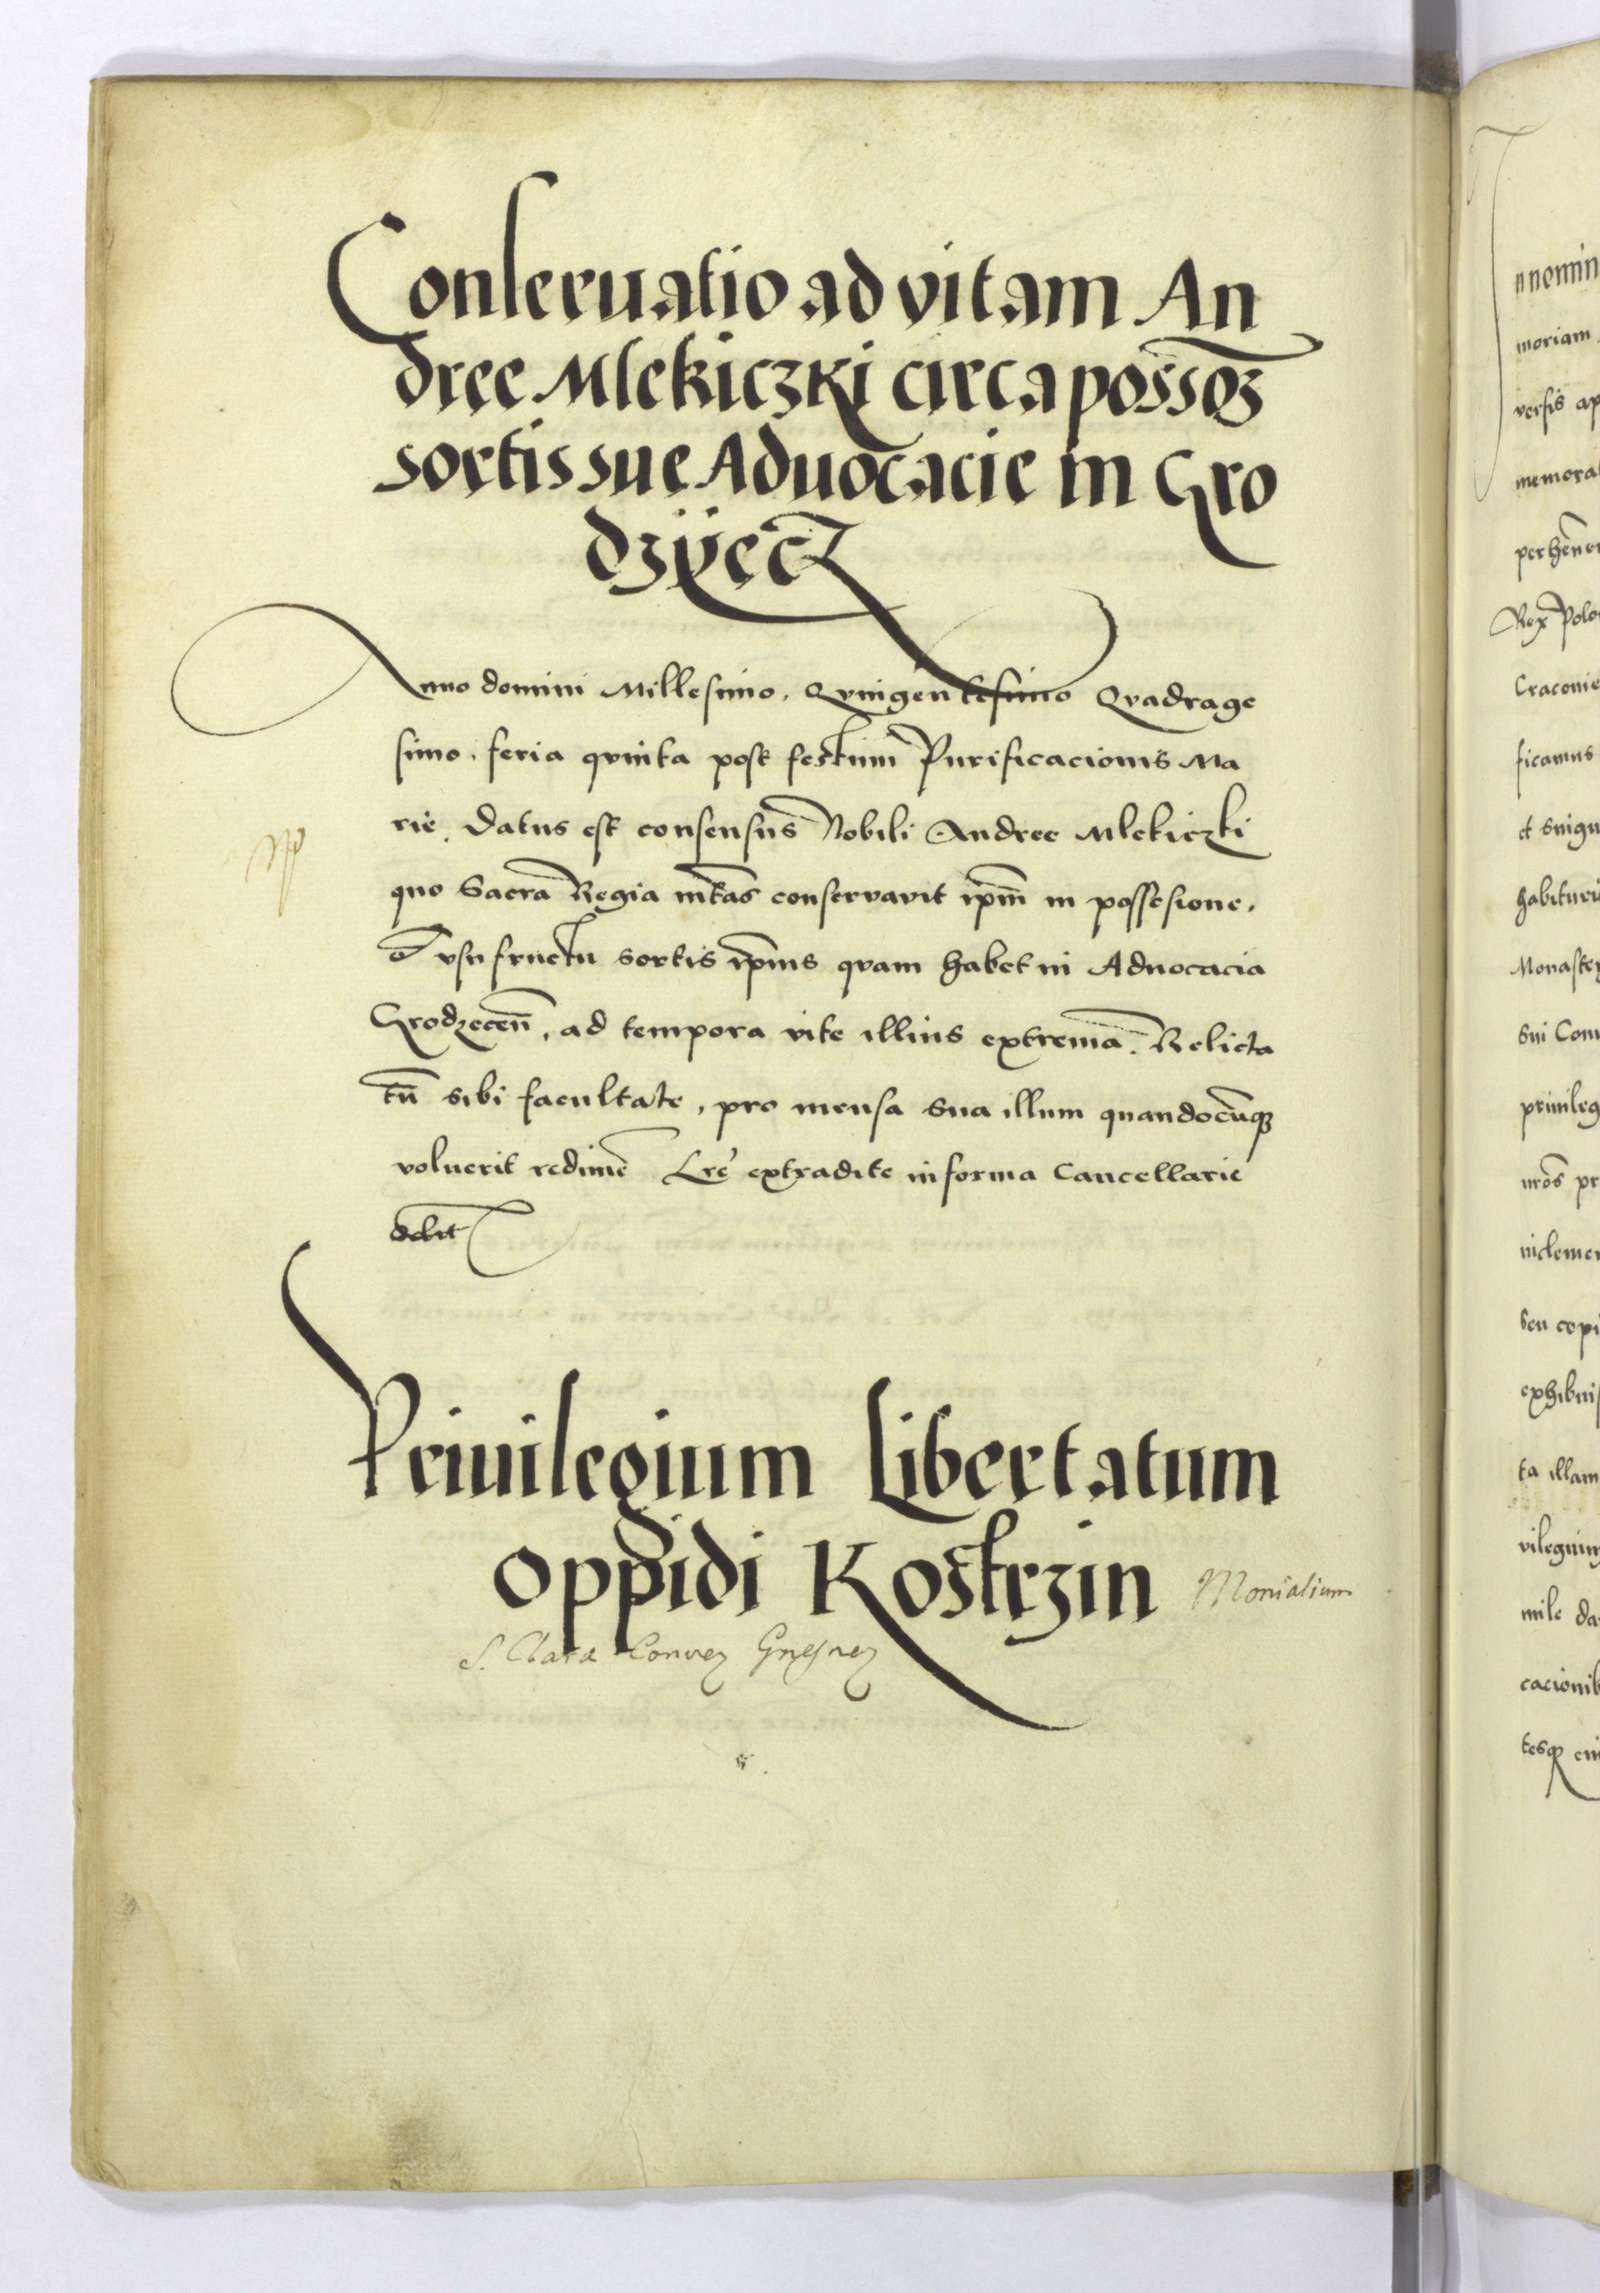 Conseruatio ad vitam An
dree Mlekiczki circa possoȝ
sortis sue Aduocacie in Gro
dzÿecz
Anno domini Millesimo. Qvingentesimo Qvadrage
simo. feria qvinta post festum Purificacionis Ma
rie. Datus est consensus Nobili Andree Mlekiczki
quo Sacra Regia mtas conservavit ipm̄ in possesione.
et vsufructu sortis ip̄ius qvam habet in Aduocacia
Grodzecen̄. ad tempora vite illius extrema. Relicta
tn̄ sibi facultate, pro mensa sua illum quandocunq̄
voluerit redimē Lr̄e extradite in forma Cancellarie
debit
Priuilegium Libertatum
oppidi Kostrzin Monialium
S. Clara Conven Gnesnen
nnomin
moriam
versis ap
memora
Rex Polo
Craconie
ficamus
et singu
habituru
Monaster
sui Con
priuileg
nr̄os pr
inclemen
seu copi
exhibuis
ta illam
vilegium
mile da
cacionib
tesq̄ ein